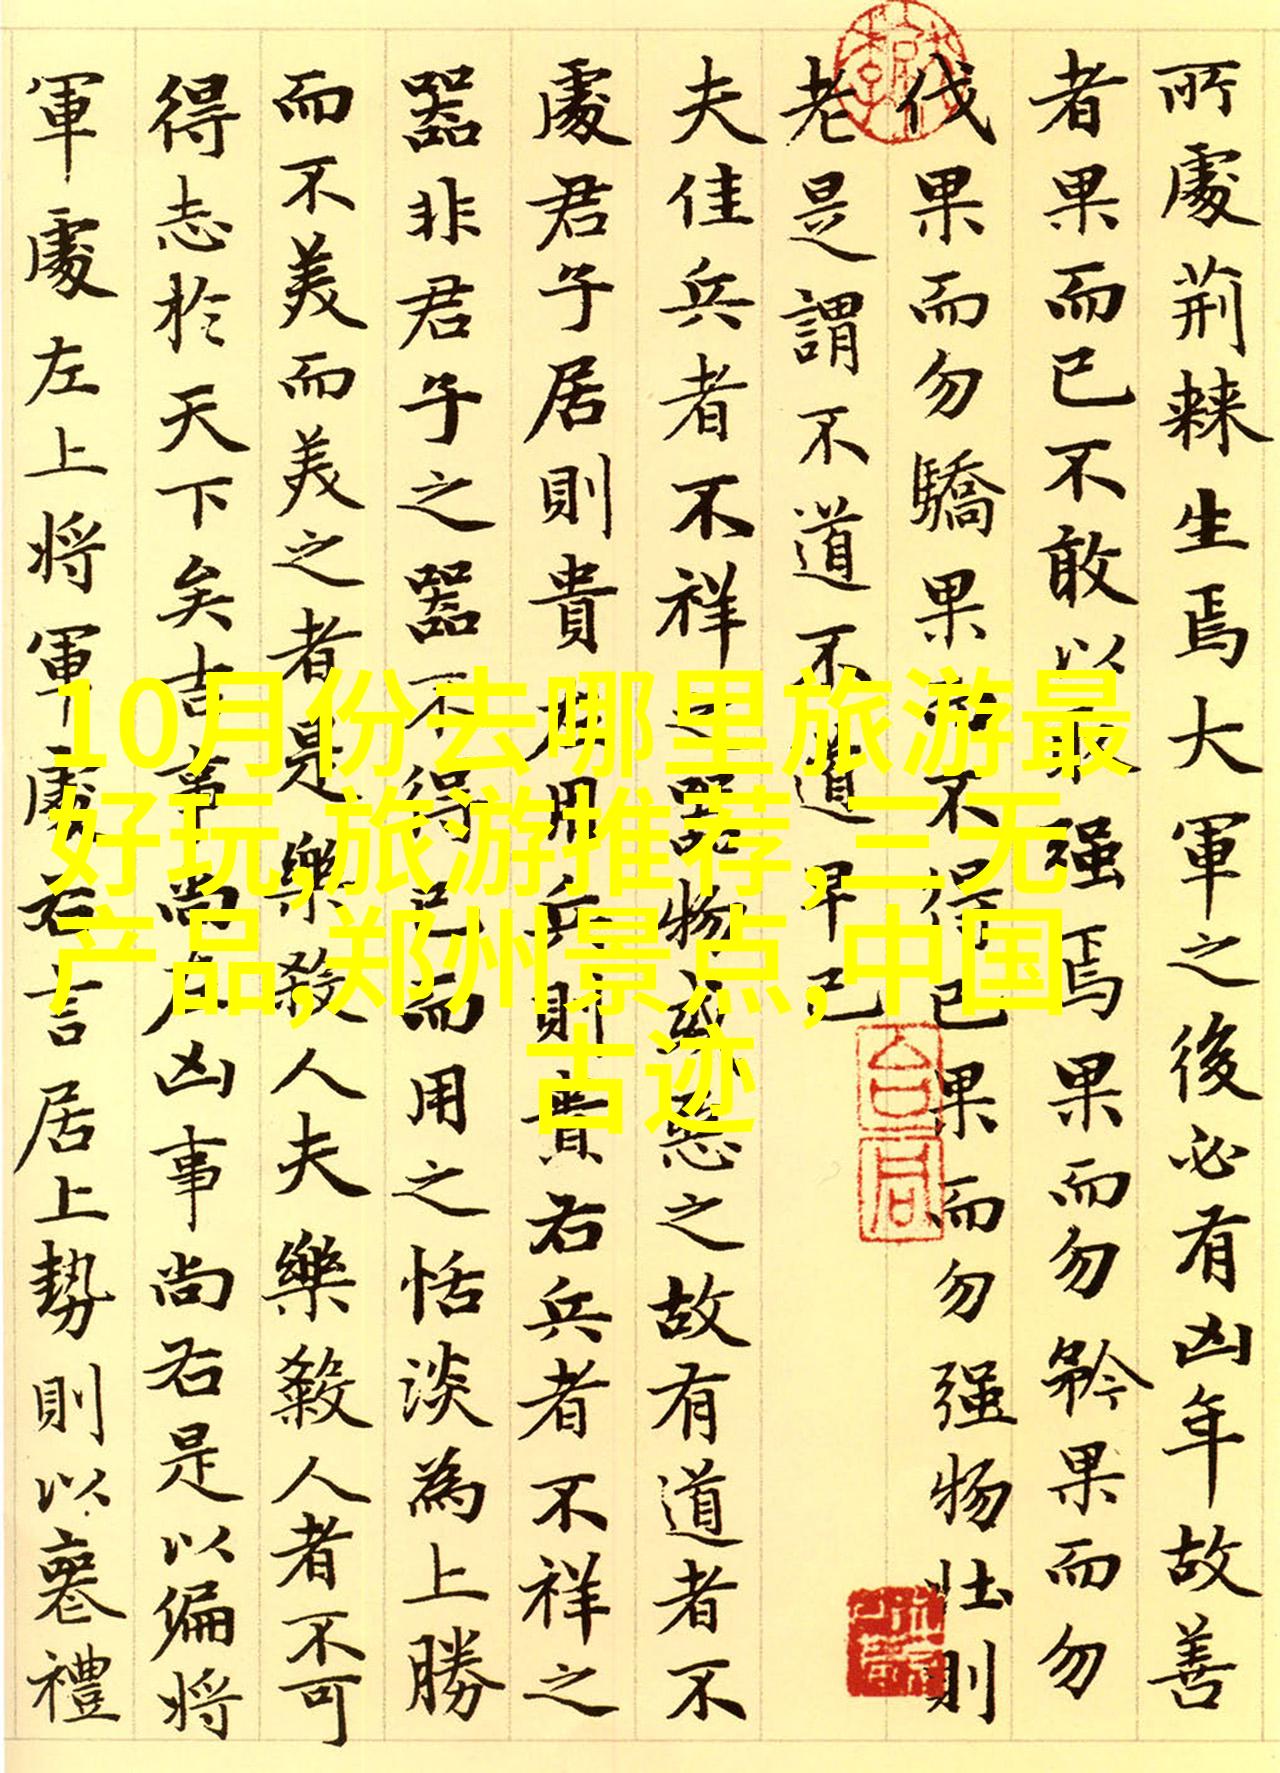 所處荊棘生焉大軍之後必有凶年故善
者果而已不敢以取强焉果而勿矜果而勿
伐果而勿驕果而不得已果而勿强物壮則
老是謂不道不道早已
夫佳兵者不祥之器物或惡之故有道者不
處君子居則貴左用兵則貴右兵者不祥之
器非君子之器不得已而用之恬淡為上勝
而不美而美之者是樂殺人夫樂殺人者不可
得志於天下矣吉事尚左凶事尚右是以偏將
軍處左上將軍處右言居上勢則以喪禮
10月份去哪里旅游最
好玩,旅游推荐,三无
产品,郑州景点,中国
古迹